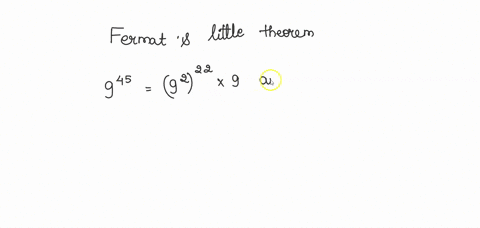 Fermat is little theorem
9^45 = (9^2)^22 × 9 x